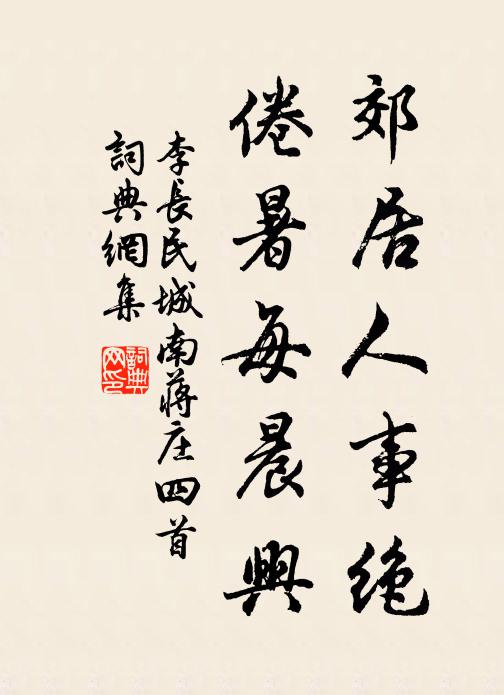 郊居人事绝
倦暑每晨興
李長民城南蔣庄四首
詞典網集
詞典网印